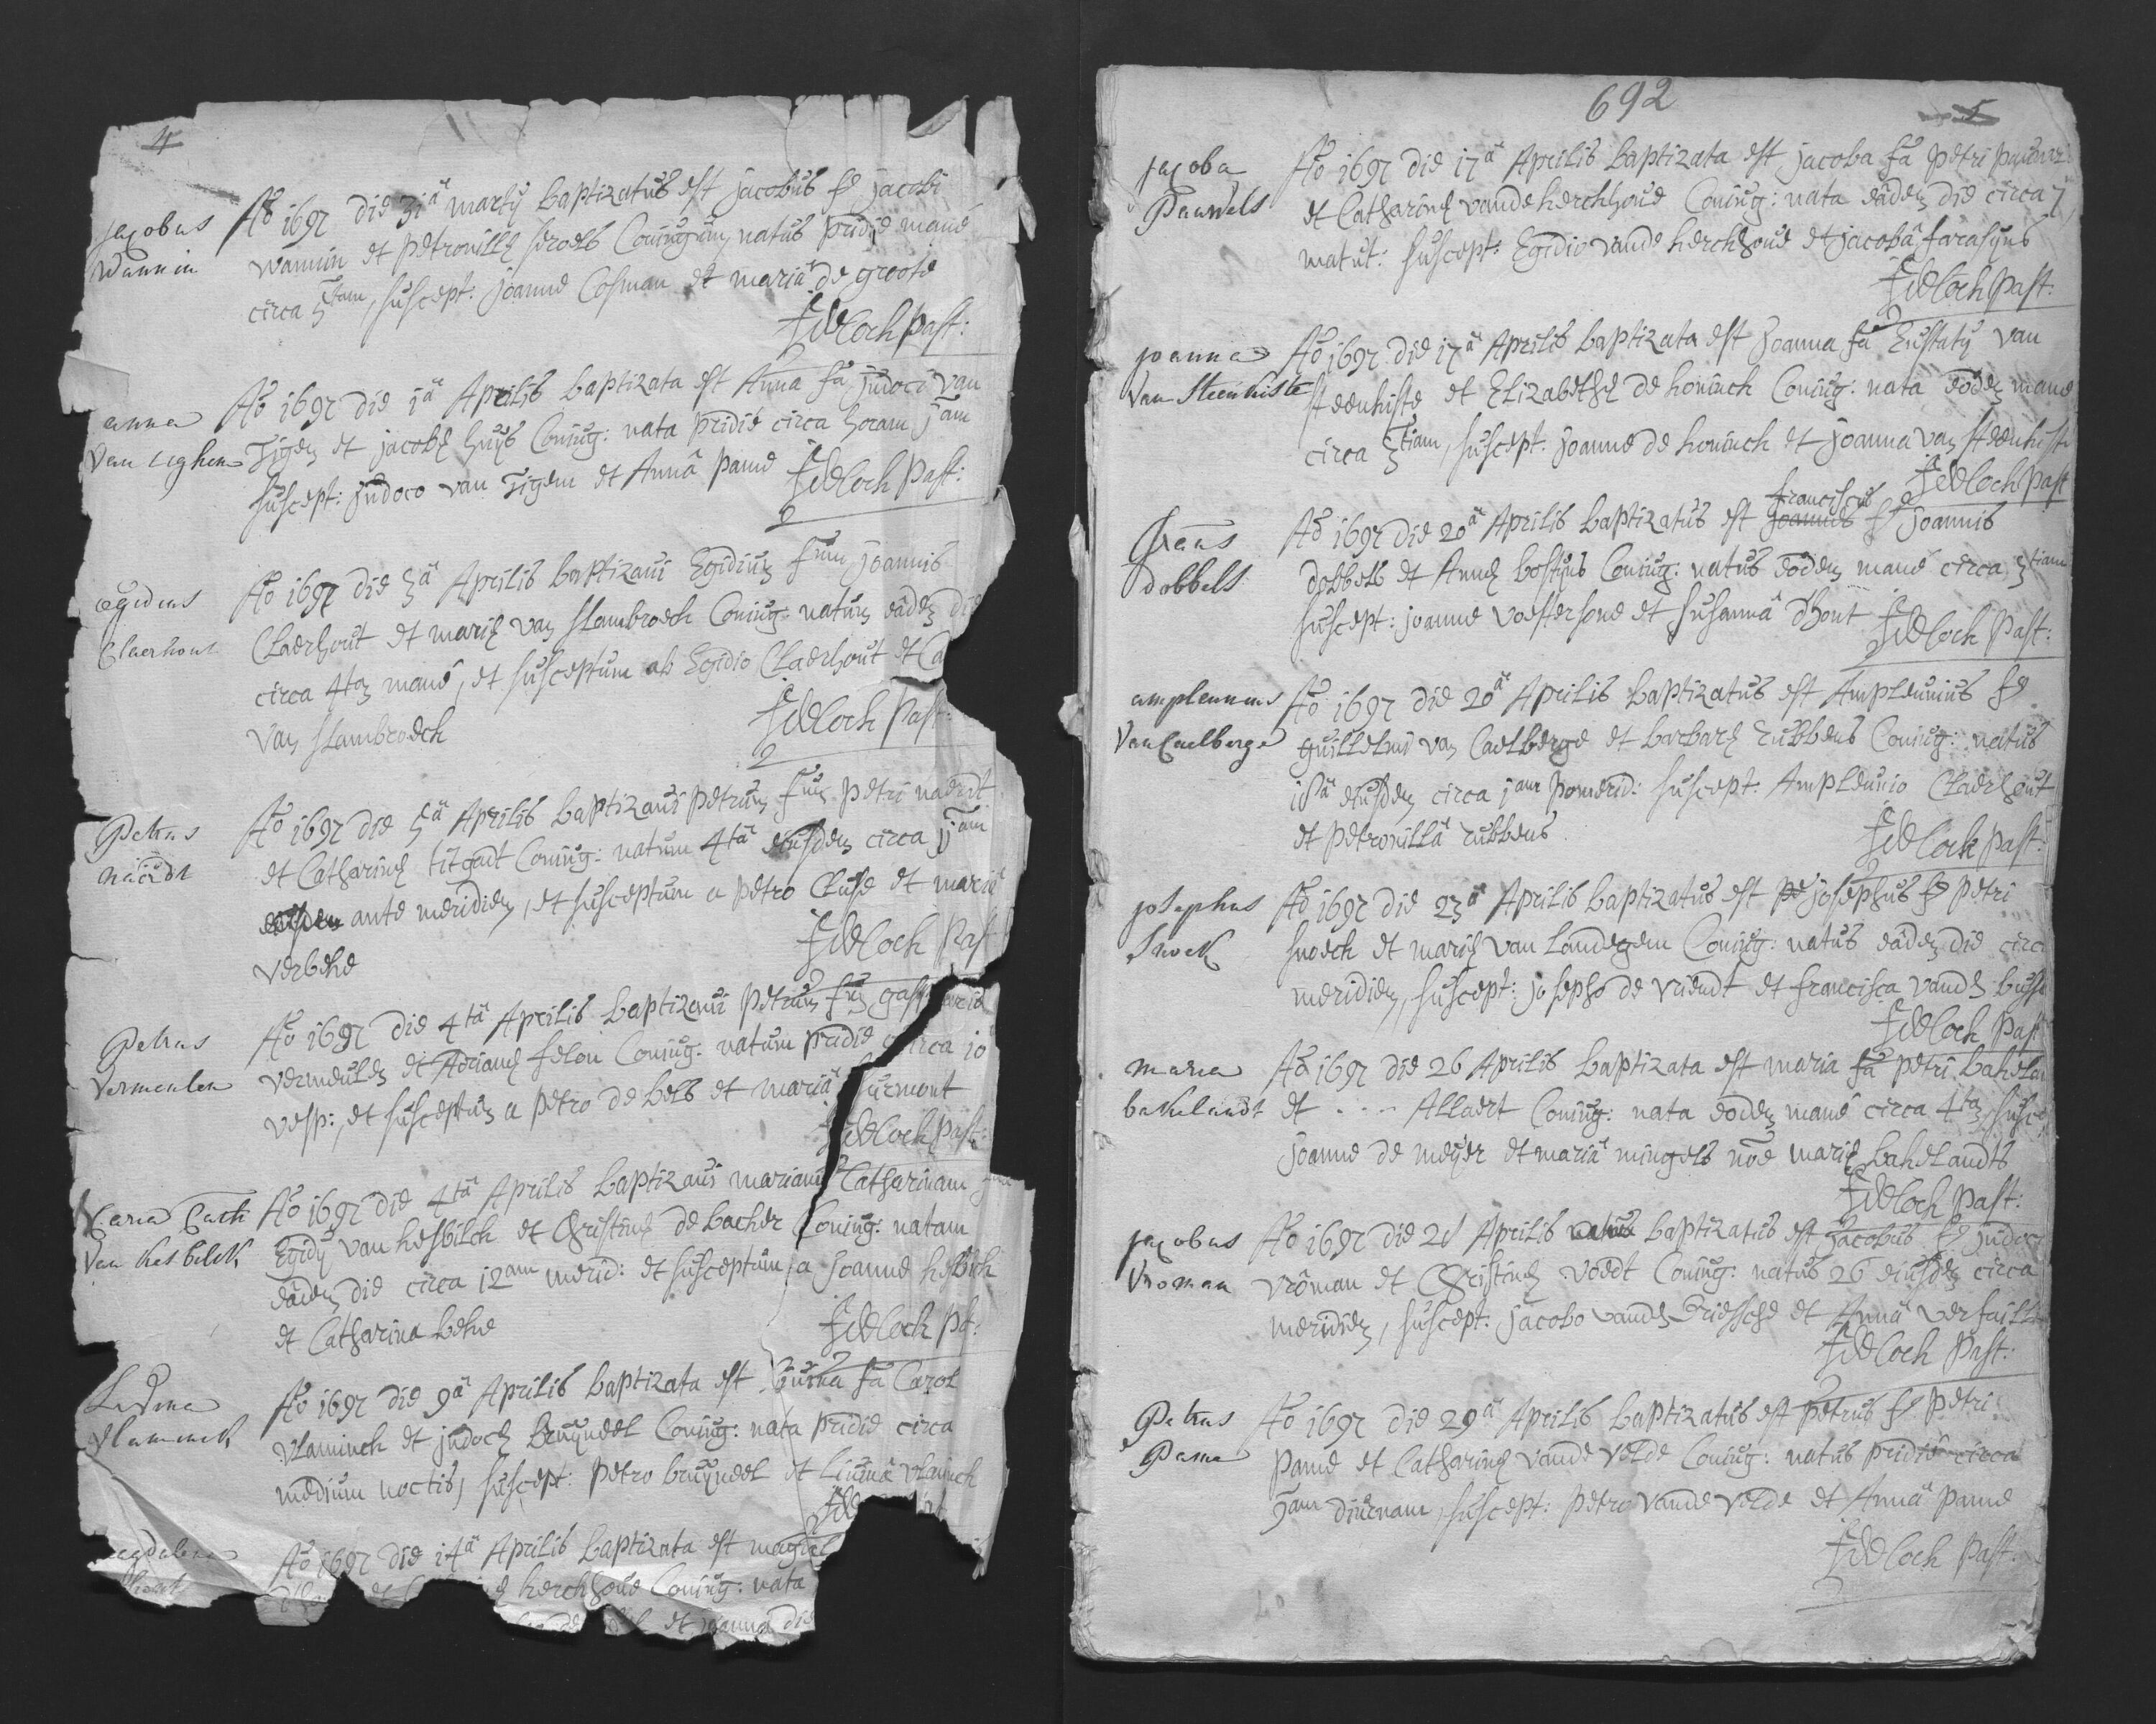 4
jacobus
Wannin
Ao 1692 die 31a martij baptizatus est jacobus fs jacobi
wannin et petronillę seroels Coniugum, natus pridie mane
circa 5tam, suscept: joanne Cosman et mariâ de groote
past:
anna
Van tighem
Ao 1692 die 1a Aprilis baptizata est Anna fa judoci van
Tigem et jacobę huijs Coniug: nata pridie circa horam jam
suscept: judoco van Tigem et Annâ pame
past:
egidius
Claerhout
Ao 1692 die 3a Aprilis baptizavi Egidium fium joannis
Claerhout et marię van slambroeck Coniug: natum eâdem die
circa 4tam mane, et susceptum ab Egidio Claerhout et Ca
van slambroeck
past:
Petrus
naerdt
Ao 1692 die 5a Aprilis baptizavi petrum fium petri naerdt
et Catharinę titgadt Coniug: natum 4ta eiusdem circa
ante meridiem, et susceptum a petro Cluse et mariâ
verbeke
past
Petrus
Vermeulen
Ao 1692 die 4ta Aprilis baptizavi petrum fium gasp
vermeulen et Adrianę felon Coniug: natum pridie circa 10
vesp:, et susceptum a petro de bels et mariâ surmont
past:
Maria Cath
Van hesbilck
Ao 1692 die 4ta Aprilis baptizavi mariam Catharinam
Egidij van hesbilck et Christinę de backer Coniug: natam
eâdem die circa 12am merid: et susceptum a joanne hesbilck
et Catharina beke
pt:
Livina
Vlaminck
Ao 1692 die 9a Aprilis baptizata est Livina fa Carol
vlaminck et judocę bruijneel Coniug: nata pridie circa
medium noctis, suscept: petro bruijneel et Livinâ vlaminck
Ao 1692 die 14a Aprilis baptizata est magdal
herckhove Coniug: nata
et joanna die
692
5
jacoba
Pauwels
Ao 1692 die 17a Aprilis baptizata est jacoba fa petri pauwels
et Catharinę vande herckhove Coniug: nata eâdem die circa 7
matut: suscept: Egidio vande herckhove et jacobâ farasijns
past:
joanna
Van Steenkiste
Ao 1692 die 17a Aprilis baptizata est Joanna fa Eustatij van
steenkiste et Elizabethę de koninck Coniug: nata eodem mane
circa 3tiam, suscept. joanne de koninck et joanna van steenkiste
past
frans
dobbels
Ao 1692 die 20a Aprilis baptizatus est franciscus fs joannis
dobbels et Annę bostijns Coniug: natus eodem mane circa 3tiam
suscept: joanne voestersone et susannâ dhont
past:
ampleunius
Van Caelberge
Ao 1692 die 20a Aprilis baptizatus est Ampleunius fs
guillelmi van Caelberge et barbarę rubbens Coniug: natus
18a eiusdem circa jam pomerid: suscept: Ampleunio Claerhout
et petronillâ rubbens
past:
josephus
Snoeck
Ao 1692 die 23a Aprilis baptizatus est josephus fs petri
snoeck et marię van Landegem Coniug: natus eâdem die circa
meridiem, suscept: josepho de vriendt et francisca vanden bussche
past
maria
bakelandt
Ao 1692 die 26 Aprilis baptizata est maria fa petri bakelan
et . . . Allaert Coniug: nata eodem mane circa 4tam, susce
joanne de meijer et mariâ mingels noe marię bakelandts
past:
jacobus
Vroman
Ao 1692 die 28 Aprilis baptizatus est Jacobus fs judoci
vroman et Christinę voedt Coniug: natus 26 eiusdem circa
meridiem, suscept: jacobo vanden driessche et Annâ verfaillie
past:
Petrus
Pame
Ao 1692 die 29a Aprilis baptizatus est petrus fs petri
pame et Catharinę vande velde Coniug: natus pridie circa
9am diurnam, suscept: petro vande velde et Annâ pame
past: